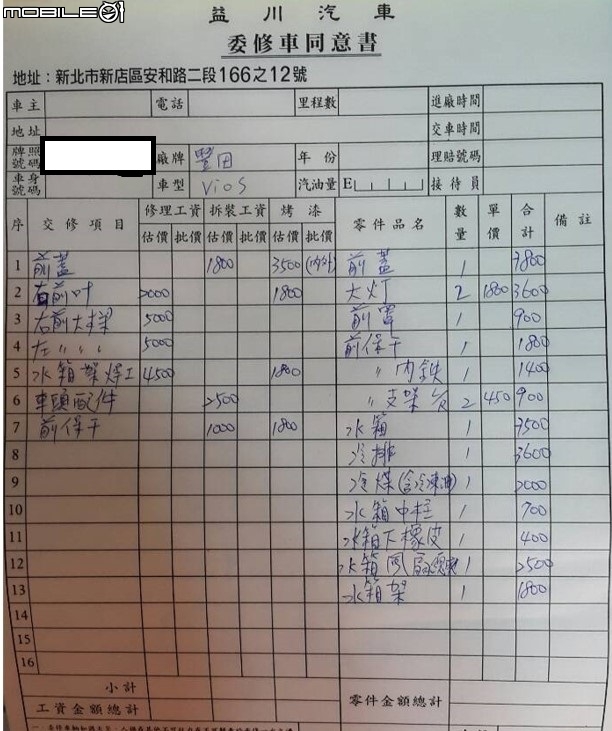 MOBILE01
益川汽車
委修車同意書
地址：新北市新店區安和路二段166之12號
車主 電話 里程數 進廠時間
地址 交車時間
牌照號碼 廠牌 豐田 年份 理賠號碼
車身號碼 車型 Vios 汽油量 E 接待員
序 交修項目 修理工資 拆裝工資 烤漆 零件品名 數量 單價 合計 備註
估價 批價 估價 批價 估價 批價
1 前蓋 1800 3500 (內外) 前蓋 1 7800
2 右前叶 2000 1800 大灯 2 1800 3600
3 右前大樑 5000 前罩 1 900
4 左〃〃〃 5000 前保干 1 1800
5 水箱架焊工 4500 1800 〃內鉄 1 1400
6 車頭配件 2500 〃支架 2 450 900
7 前保干 1000 1800 水箱 1 3500
8 冷排 1 3600
9 冷煤(含冷凍油) 1 2000
10 水箱中柱 1 700
11 水箱下橡皮 1 400
12 水箱風扇 1 2500
13 水箱架 1 1800
14
15
16
小計
工資金額總計 零件金額總計